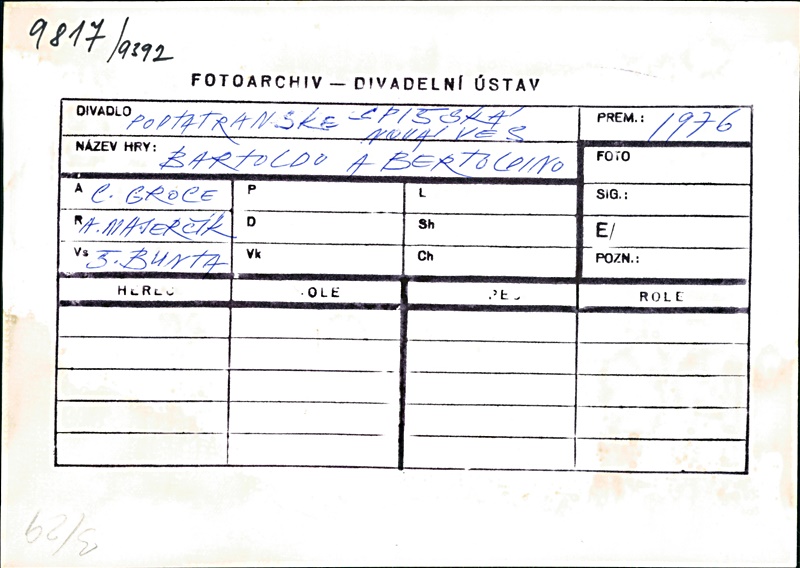 9817/9392
FOTOARCHIV — DIVADELNÍ ÚSTAV
DIVADLO PODTATRANSKE SPIŠSKÁ
NOVÁ VES
PREM.: 1976
NÁZEV HRY: BARTOLDO A BERTOLDINO
FOTO
A C. GROCE P L SIG.:
R A. MAJERČÍK D Sh E/
Vs Š. BUNTA Vk Ch POZN.:
HEREC ROLE HEREC ROLE